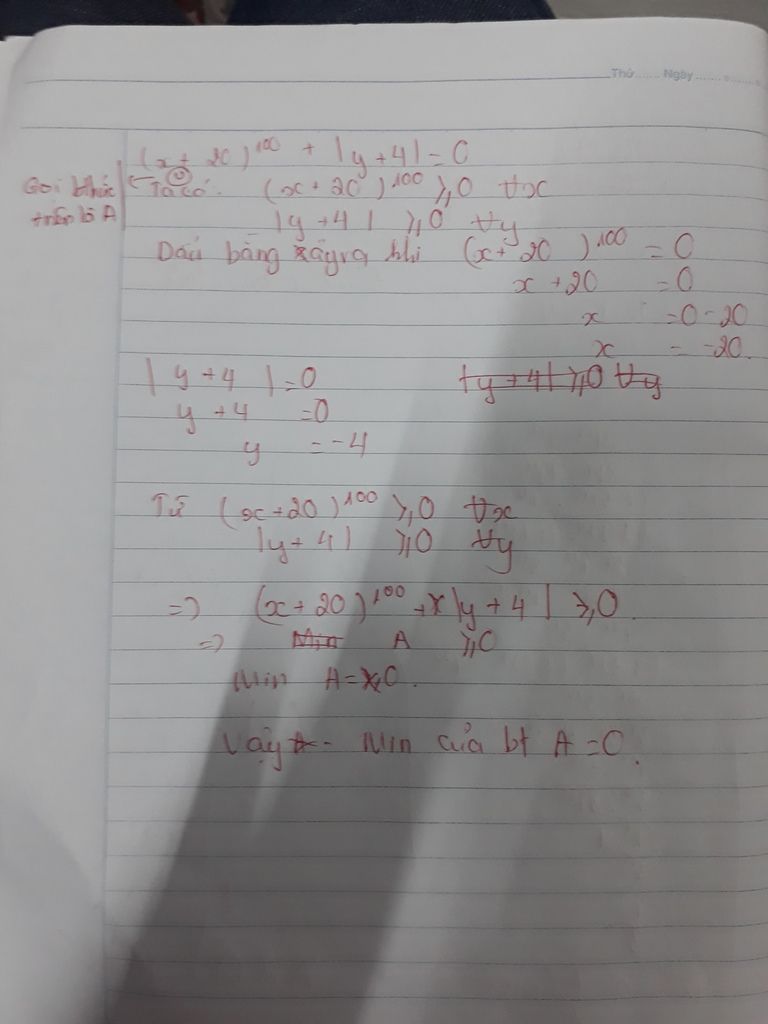 Thứ...... Ngày.............
(x + 20)¹⁰⁰ + |y + 4| = 0
Gọi bthức
trên là A
Ta có. (x + 20)¹⁰⁰ ⩾ 0 ∀x
|y + 4| ⩾ 0 ∀y
Dấu bằng xảy ra khi (x + 20)¹⁰⁰ = 0
x + 20 = 0
x = 0 - 20
x = -20.
|y + 4| = 0
|y + 4| ⩾ 0 ∀y
y + 4 = 0
y = -4
Từ (x + 20)¹⁰⁰ ⩾ 0 ∀x
|y + 4| ⩾ 0 ∀y
=> (x + 20)¹⁰⁰ + |y + 4| ⩾ 0.
=> Min A ⩾ 0
Min A = 0.
Vậy - Min của bt A = 0.